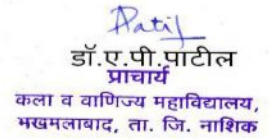 Patil
डॉ.ए.पी.पाटील
प्राचार्य
कला व वाणिज्य महाविद्यालय,
मखमलाबाद, ता. जि. नाशिक